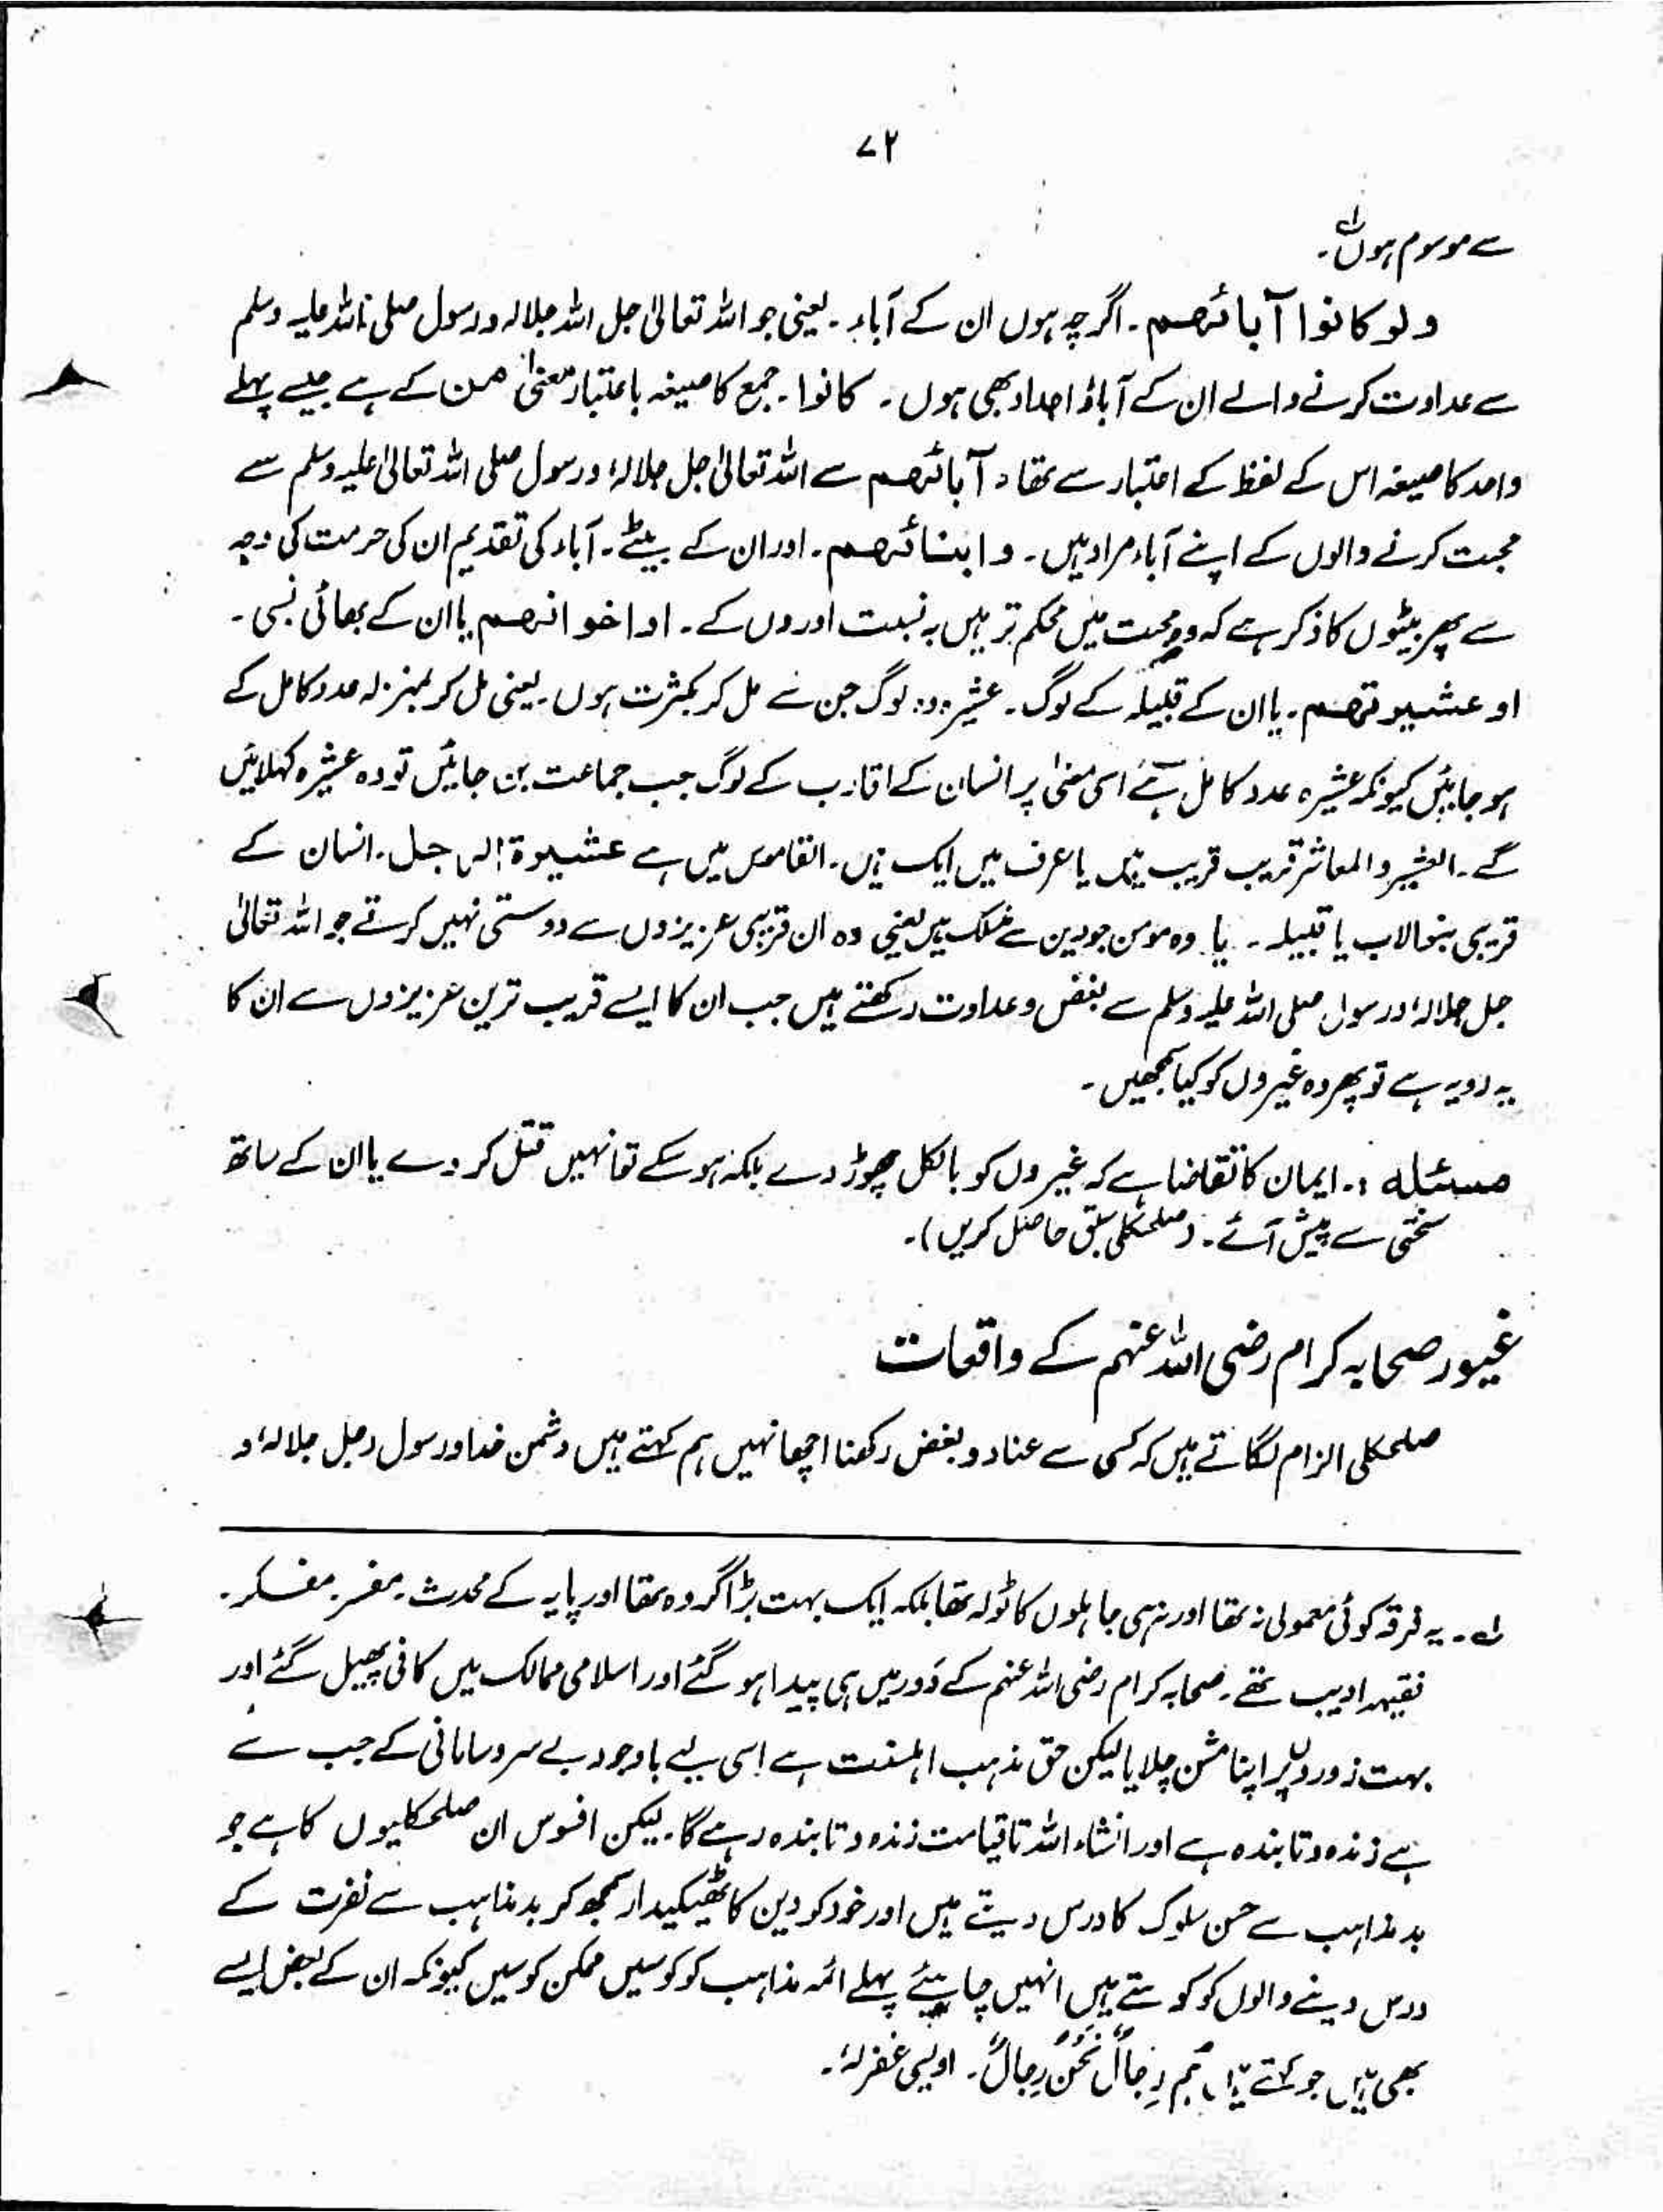 ۷۲
سے موسوم ہوں لے۔
ولو کانوا آبائھم۔ اگرچہ ہوں ان کے آباء۔ یعنی جو اللہ تعالیٰ جل اللہ جلالہ و رسول صلی اللہ علیہ وسلم
سے عداوت کرنے والے ان کے آباؤ اجداد بھی ہوں۔ کانوا۔ جمع کا صیغہ باعتبار معنیٰ من کے ہے جیسے پہلے
واحد کا صیغہ اس کے لفظ کے اعتبار سے تھا۔ آبائھم سے اللہ تعالیٰ جل جلالہٗ و رسول صلی اللہ تعالیٰ علیہ وسلم سے
محبت کرنے والوں کے اپنے آباء مراد ہیں۔ وابنائھم۔ اور ان کے بیٹے۔ آباء کی تقدیم ان کی حرمت کی وجہ
سے پھر بیٹوں کا ذکر ہے کہ وہ محبت میں محکم تر ہیں بہ نسبت اوروں کے۔ او اخوانھم یا ان کے بھائی نسبی۔
او عشیرتھم۔ یا ان کے قبیلہ کے لوگ۔ عشیرہ وہ لوگ جن سے مل کر بکثرت ہوں۔ یعنی مل کر بمنزلہ عدد کامل کے
ہو جائیں کیونکہ عشیرہ عدد کامل ہے اسی معنیٰ پر انسان کے اقارب کے لوگ جب جماعت بن جائیں تو وہ عشیرہ کہلائیں
گے۔ العشیر والمعاشر قریب قریب ہیں یا عرف میں ایک ہیں۔ القاموس میں ہے عشیرۃ الرجل۔ انسان کے
قریبی بنوالاب یا قبیلہ۔ یا وہ مومن جو دین سے منسلک ہیں یعنی وہ ان قریبی عزیزوں سے دوستی نہیں کرتے جو اللہ تعالیٰ
جل جلالہٗ و رسول صلی اللہ علیہ وسلم سے بغض و عداوت رکھتے ہیں جب ان کا ایسے قریب ترین عزیزوں سے ان کا
یہ رویہ ہے تو پھر وہ غیروں کو کیا سمجھیں۔
مسئلہ :۔ ایمان کا تقاضا ہے کہ غیروں کو بالکل چھوڑ دے بلکہ ہو سکے تو انہیں قتل کر دے یا ان کے ساتھ
سختی سے پیش آئے۔ (صلحکلی سبق حاصل کریں)۔
غیور صحابہ کرام رضی اللہ عنہم کے واقعات
صلحکلی الزام لگاتے ہیں کہ کسی سے عناد و بغض رکھنا اچھا نہیں ہم کہتے ہیں دشمن خدا و رسول (جل جلالہٗ و
لے۔ یہ فرقہ کوئی معمولی نہ تھا اور نہ ہی جاہلوں کا ٹولہ تھا بلکہ ایک بہت بڑا گروہ تھا اور پایہ کے محدث۔ مفسر۔ مفکر۔
فقیہہ ادیب تھے۔ صحابہ کرام رضی اللہ عنہم کے دَور میں ہی پیدا ہو گئے اور اسلامی ممالک میں کافی پھیل گئے اور
بہت زوروں پر اپنا مشن چلایا لیکن حق مذہب اہلسنت ہے اسی لیے باوجود بے سروسامانی کے جب سے
ہے زندہ و تابندہ ہے اور انشاء اللہ تا قیامت زندہ و تابندہ رہے گا۔ لیکن افسوس ان صلحکلیوں کا ہے جو
بد مذاہب سے حسن سلوک کا درس دیتے ہیں اور خود کو دین کا ٹھیکیدار سمجھ کر بد مذاہب سے نفرت کے
درس دینے والوں کو کوستے ہیں انہیں چاہیئے پہلے ائمہ مذاہب کو کوسیں ممکن کوسیں کیونکہ ان کے بعض ایسے
بھی ہیں جو کہتے ہیں ہُم رِجَالٌ نَحْنُ رِجَالٌ۔ اویسی غفرلہٗ۔